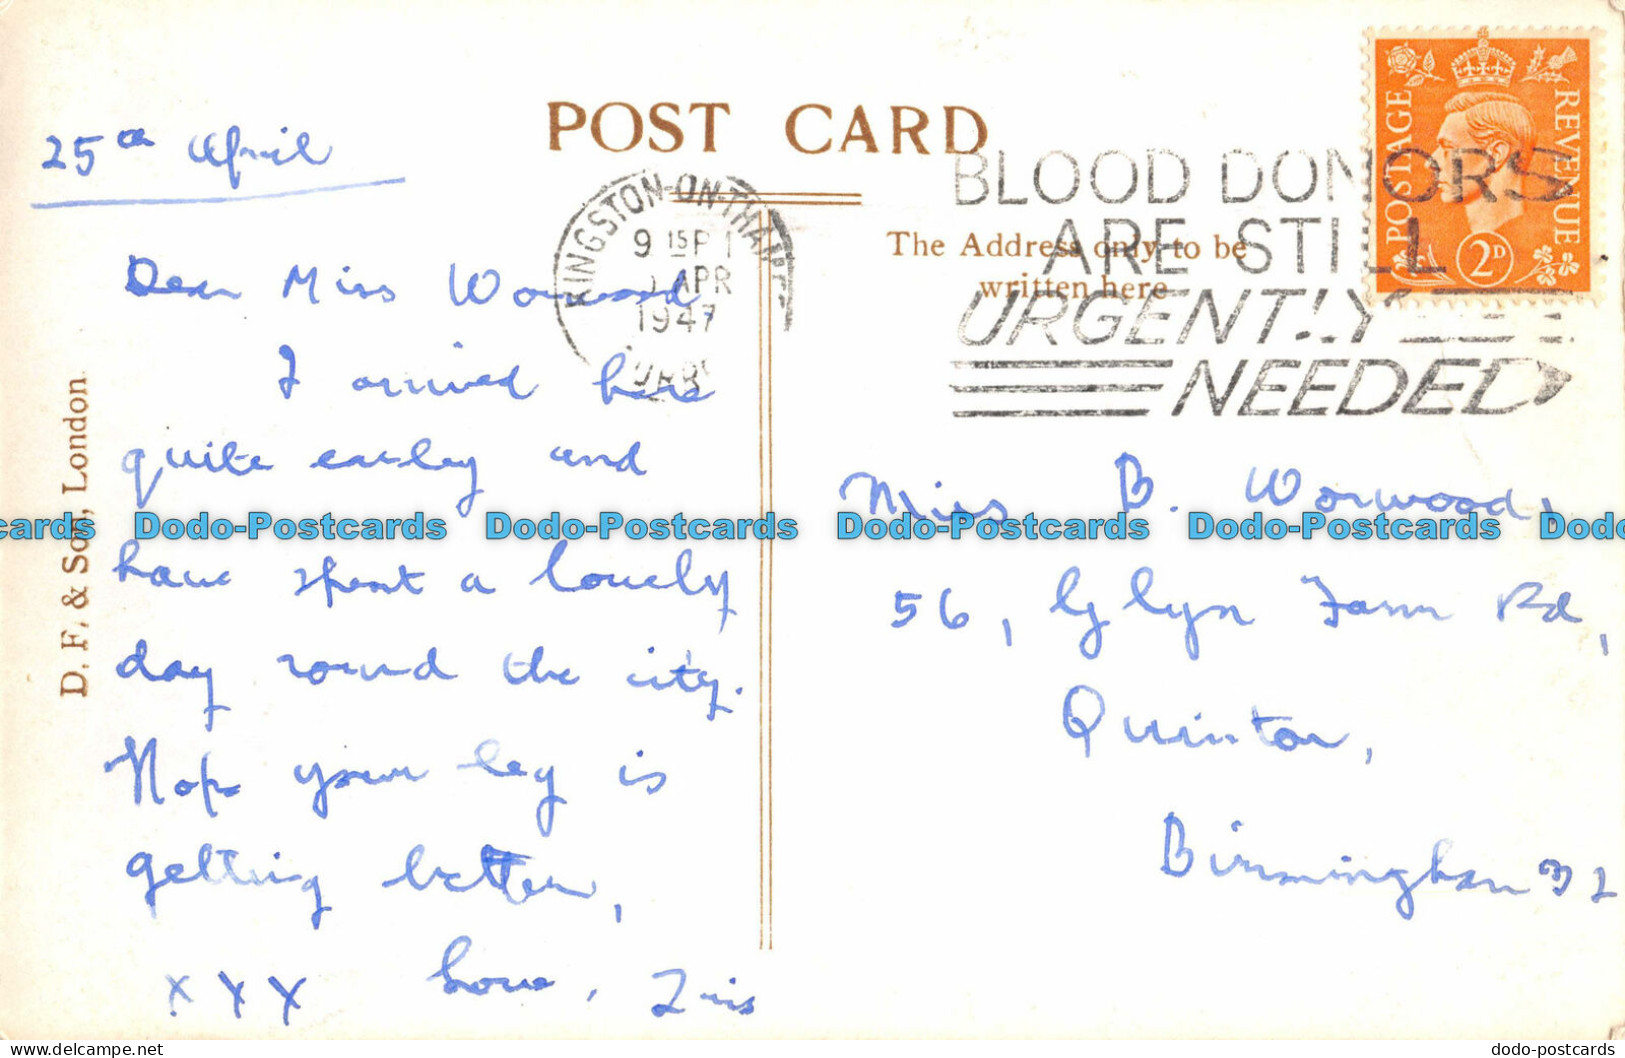 POST CARD
25th April
KINGSTON-ON-THAMES
9 15 P
APR
1947
BLOOD DONORS
ARE STILL
URGENTLY
NEEDED
POSTAGE REVENUE
2D
The Address only to be
written here
Dear Miss Worwood,
I arrived here
quite earley and
have spent a lovely
day round the city.
Hope your leg is
getting better,
x x x Love, Iris
D. F. & Son, London
Miss B. Worwood,
56, Glyn Farm Rd,
Quinton,
Birmingham 32
Dodo-Postcards Dodo-Postcards Dodo-Postcards Dodo-Postcards Dodo-Postcards
www.delcampe.net
dodo-postcards